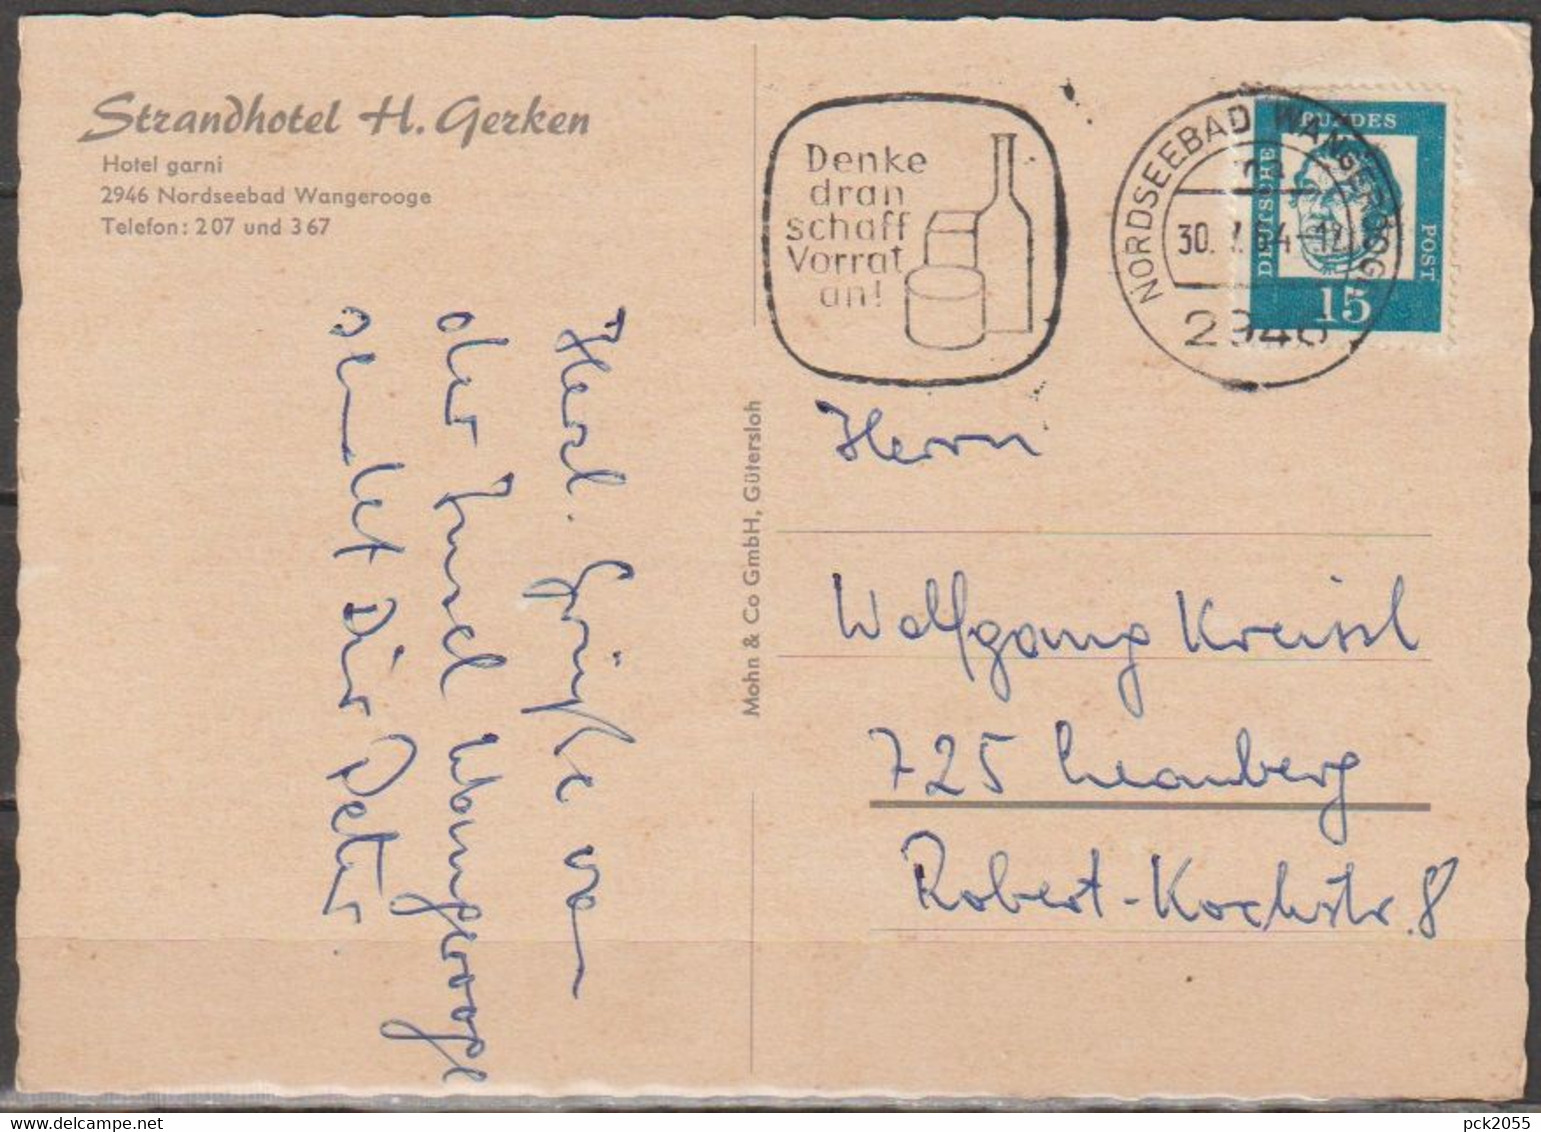 Strandhotel H. Gerken
Hotel garni
2946 Nordseebad Wangerooge
Telefon: 207 und 367
Herzl. Grüße von
der Insel Wangerooge
sendet Dir Peter.
Mohn & Co GmbH, Gütersloh
Denke
dran
schaff
Vorrat
an!
NORDSEEBAD WANGEROOGE
30. 7. 64-12
2946
DEUTSCHE
BUNDES
POST
15
Herrn
Wolfgang Kreissl
725 Leonberg
Robert-Kochstr. 8
pck2055